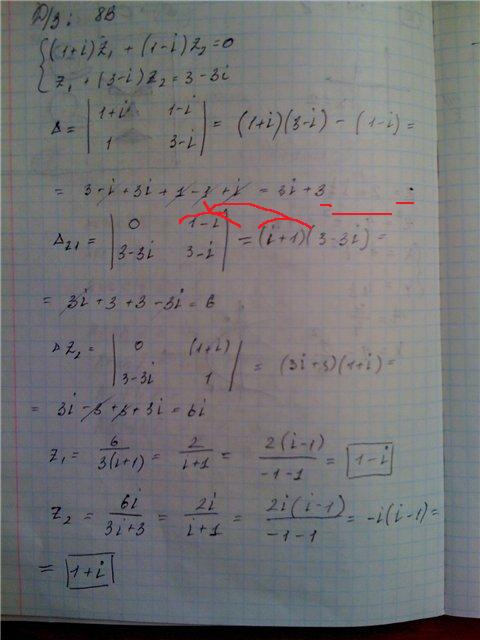 Д/З: 8В
{ (1+i)z₁ + (1-i)z₂ = 0
z₁ + (3-i)z₂ = 3-3i
Δ = | 1+i 1-i | = (1+i)(3-i) - (1-i) =
| 1 3-i |
= 3 - i + 3i + 1 - 1 + i = 3i + 3
Δz₁ = | 0 1-i | = (i+1)(3-3i) =
| 3-3i 3-i |
= 3i + 3 + 3 - 3i = 6
Δz₂ = | 0 (1+i) | = (3i+3)(1+i) =
| 3-3i 1 |
= 3i - 3 + 3 + 3i = 6i
z₁ = 6/3(i+1) = 2/i+1 = 2(i-1)/-1-1 = 1-i
z₂ = 6i/3i+3 = 2i/i+1 = 2i(i-1)/-1-1 = -i(i-1) =
= 1+i